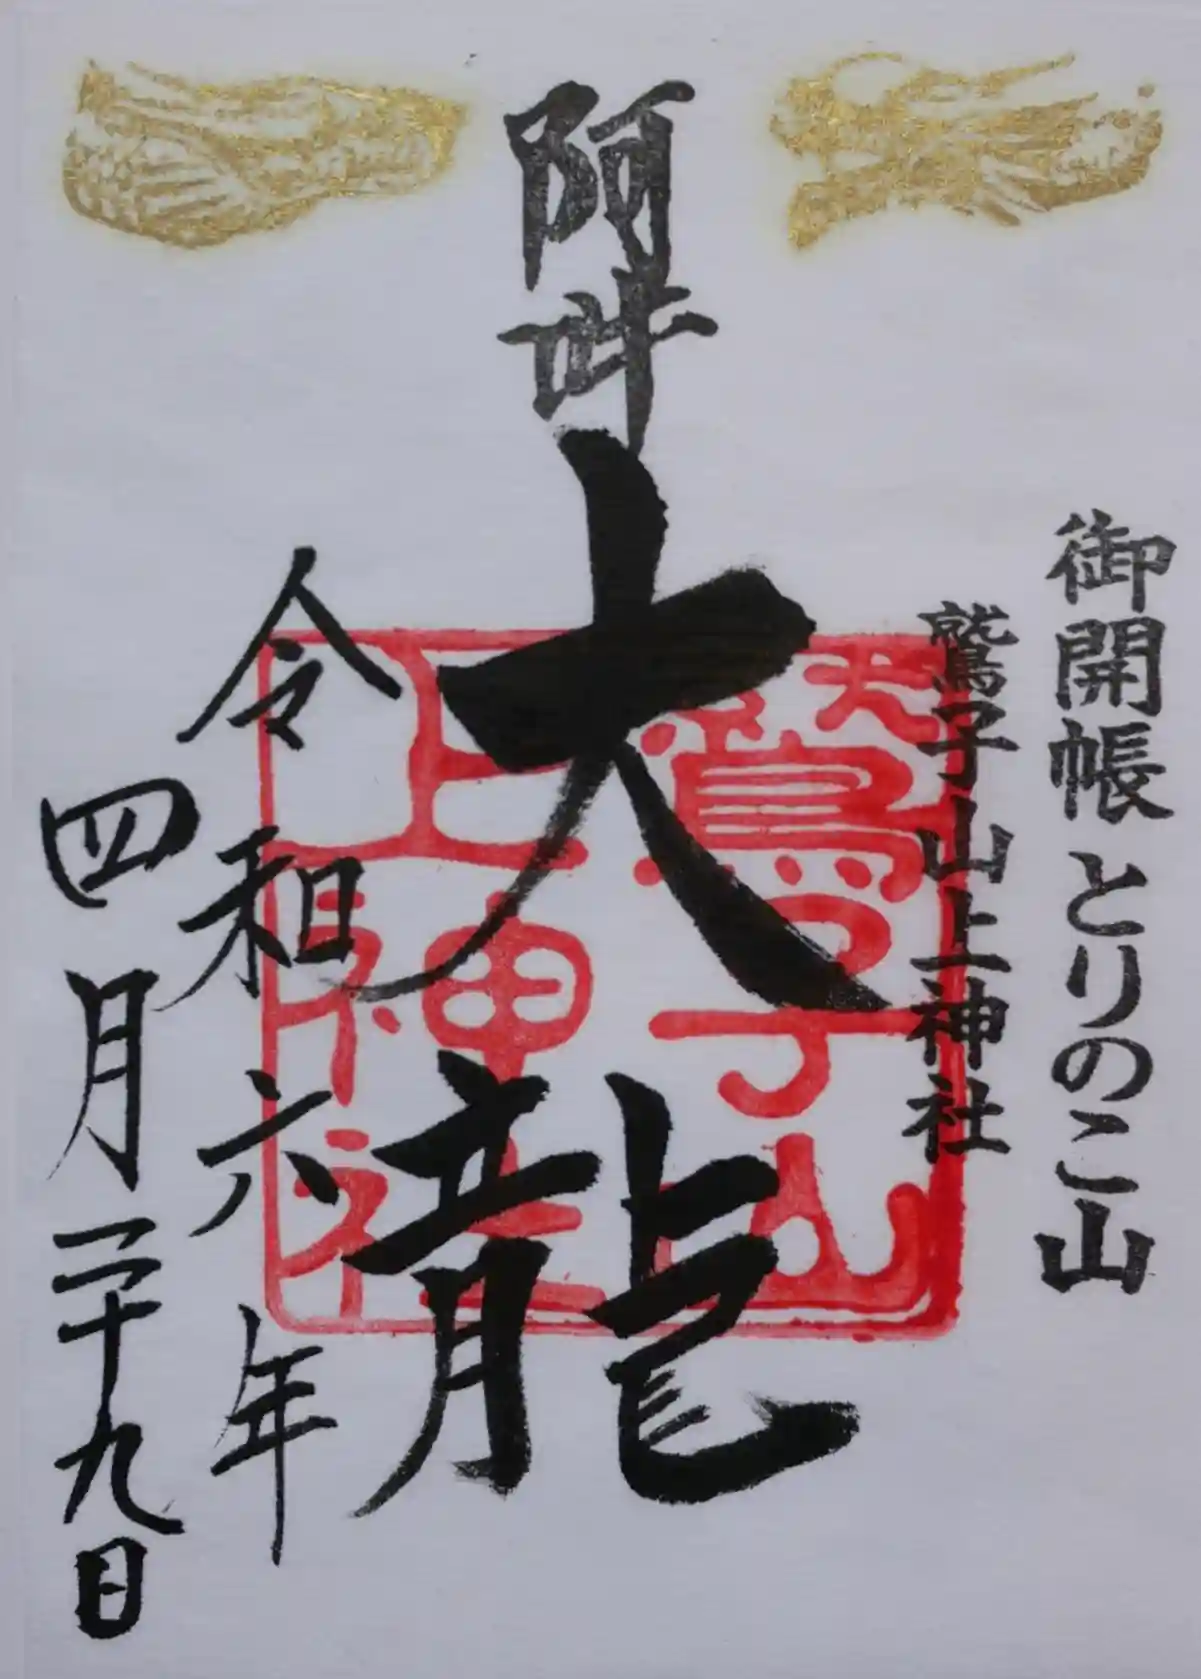 御開帳 とりのこ山
鷲子山上神社
阿吽
大龍
鷲子山
上神社
令和六年
四月二十九日